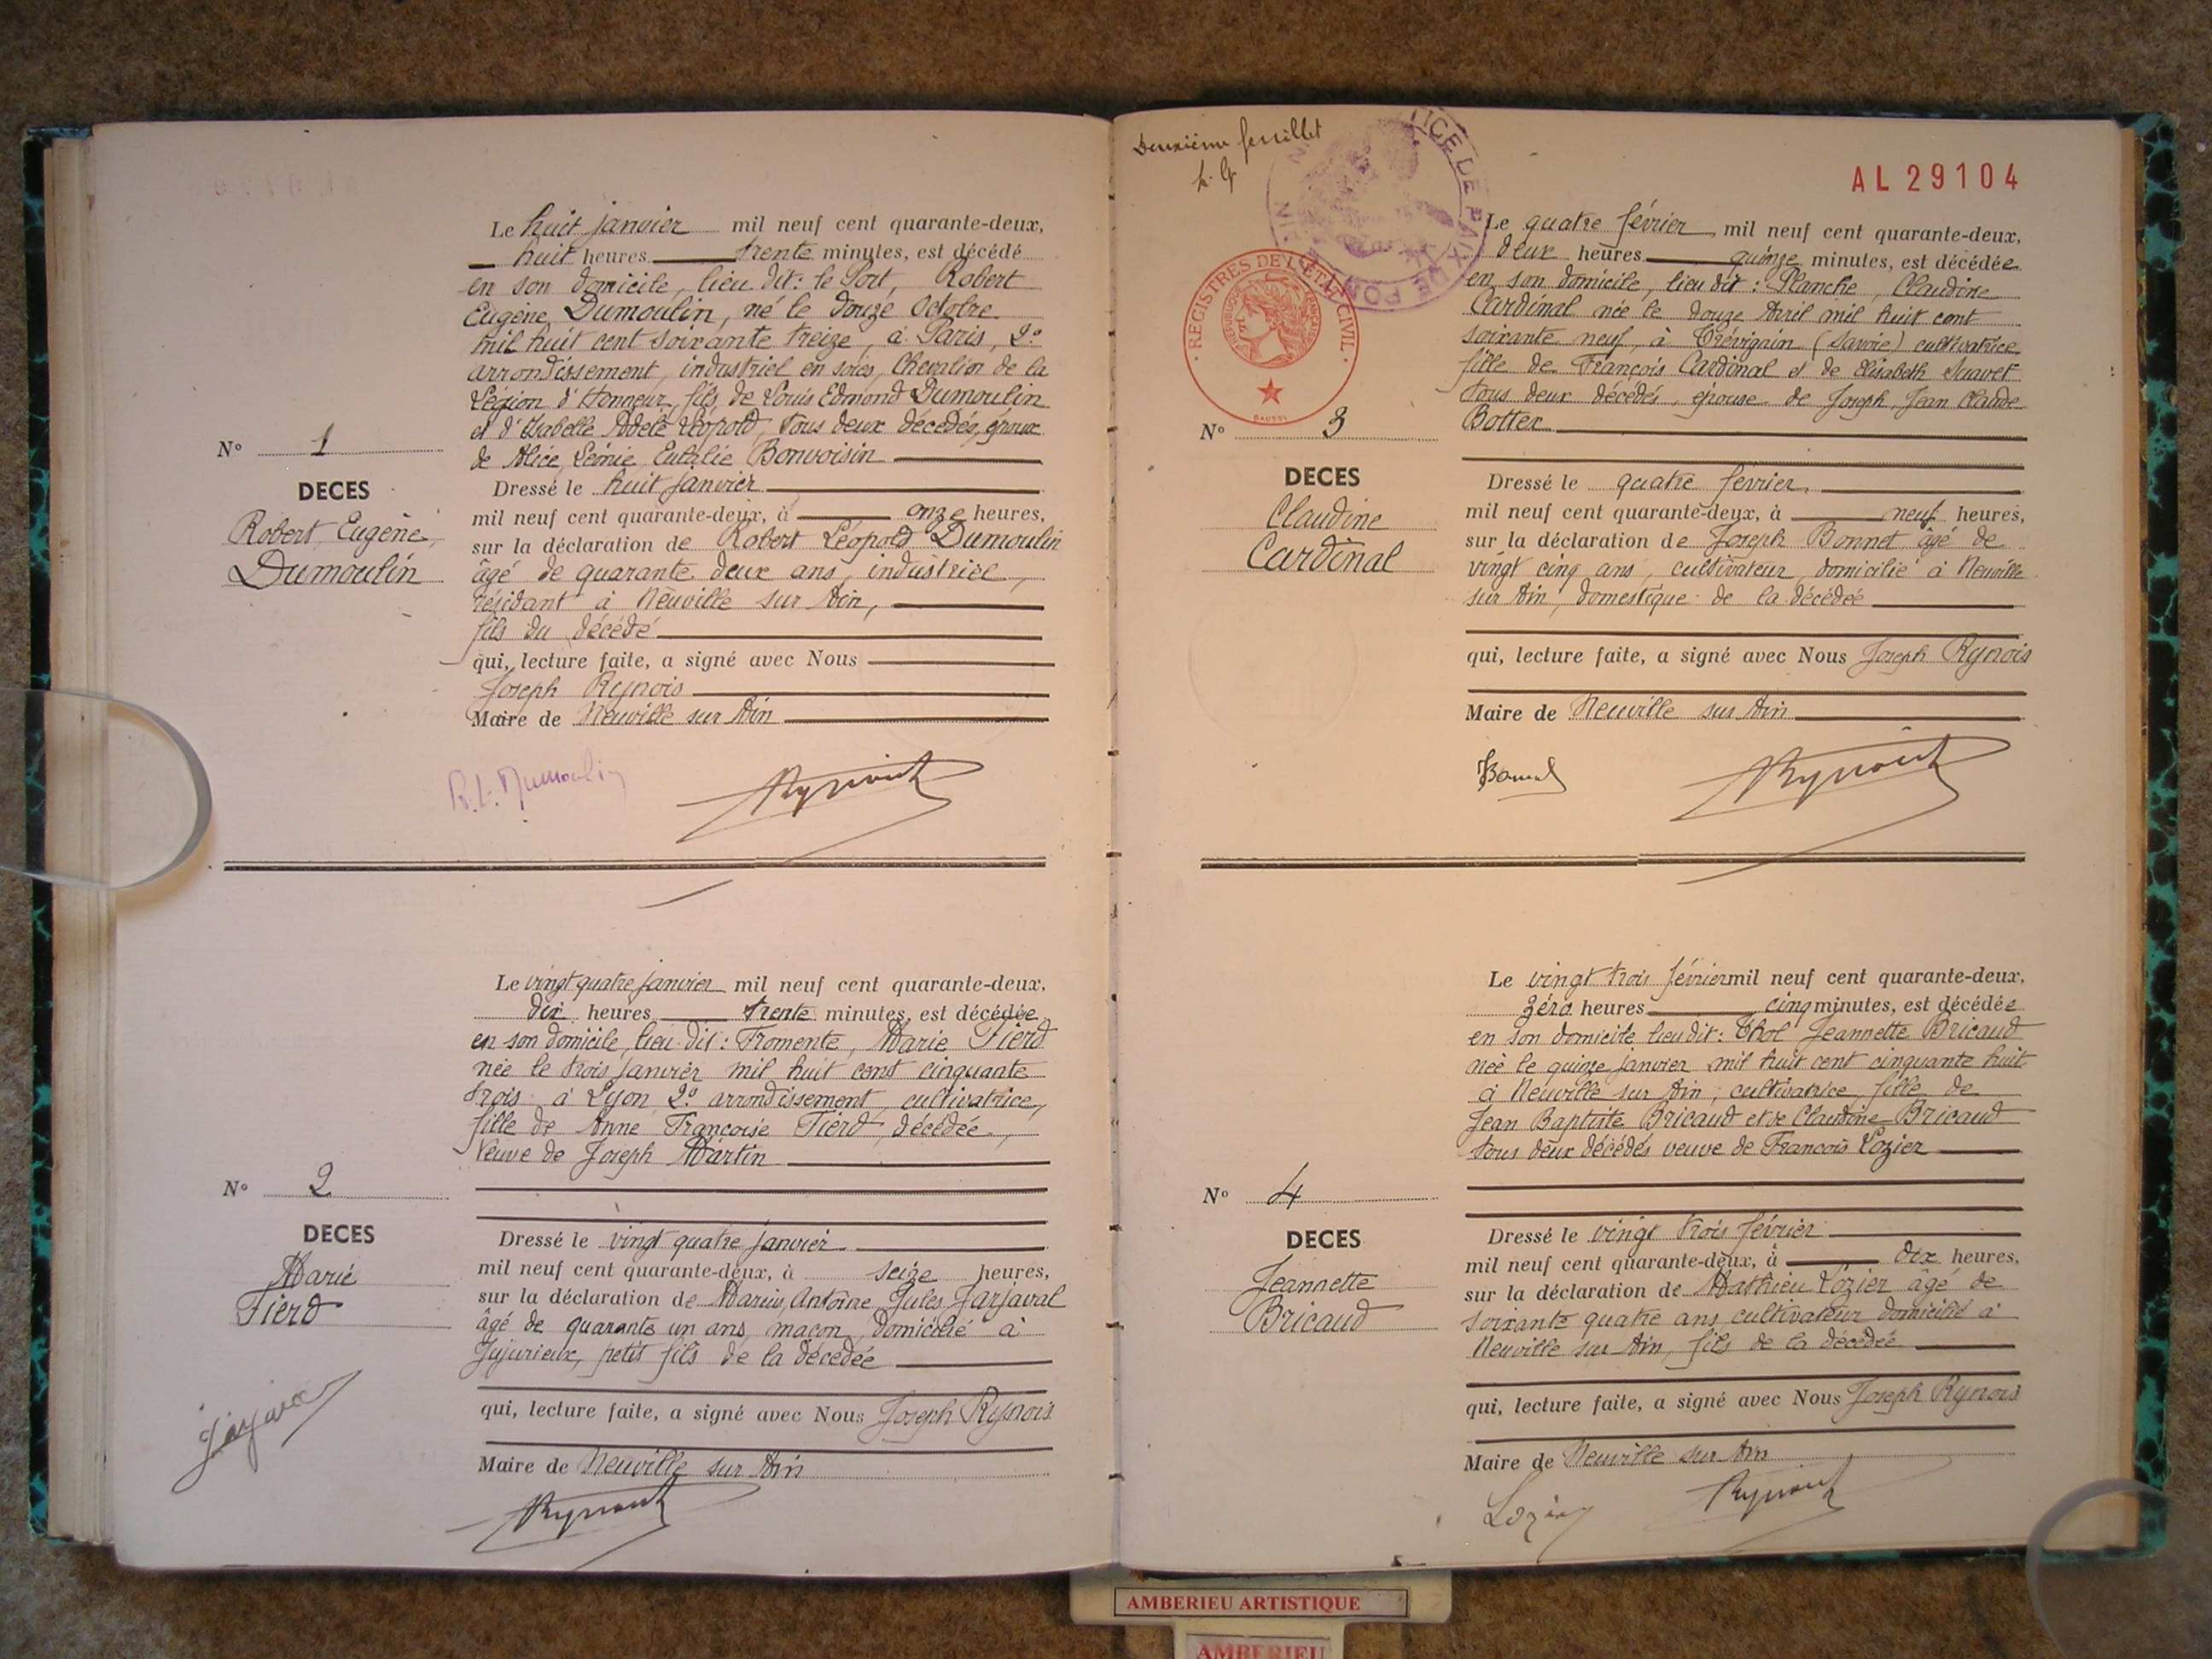 Le huit janvier mil neuf cent quarante-deux,
huit heures trente minutes, est décédé
en son domicile, lieu dit: le Port, Robert
Eugène Dumoulin, né le douze octobre
mil huit cent soixante treize, à Paris, 2e
arrondissement, industriel en soies, Chevalier de la
Légion d'Honneur, fils de Louis Edmond Dumoulin
et d'Isabelle Adèle Léopold, tous deux décédés, époux
de Alice Léonie Eulalie Bonvoisin
N° 1
DECES
Robert Eugène
Dumoulin
Dressé le huit janvier
mil neuf cent quarante-deux, à onze heures,
sur la déclaration de Robert Léopold Dumoulin
âgé de quarante deux ans, industriel,
résidant à Neuville sur Ain,
fils du décédé
qui, lecture faite, a signé avec Nous
Joseph Rynois
Maire de Neuville sur Ain
R.L. Dumoulin
Le vingt quatre janvier mil neuf cent quarante-deux,
dix heures trente minutes, est décédée
en son domicile, lieu dit: Fromente, Marie Fierd
née le trois janvier mil huit cent cinquante
trois à Lyon 2e arrondissement, cultivatrice,
fille de Anne Françoise Fierd, décédée,
Veuve de Joseph Martin
N° 2
DECES
Marie
Fierd
Dressé le vingt quatre janvier
mil neuf cent quarante-deux, à seize heures,
sur la déclaration de Marius, Antoine, Jules Jarjaval
âgé de quarante un ans, maçon, domicilié à
Jujurieux, petit fils de la décédée
qui, lecture faite, a signé avec Nous Joseph Rynois
Maire de Neuville sur Ain
Deuxième feuillet
AL 29104
REGISTRES DE L'ETAT CIVIL
Le quatre février mil neuf cent quarante-deux,
deux heures quinze minutes, est décédée
en son domicile, lieu dit: Planche, Claudine
Cardinal née le douze Avril mil huit cent
soixante neuf, à Trévignin (Savoie) cultivatrice
fille de François Cardinal et de Elisabeth Suavet
tous deux décédés, épouse de Joseph, Jean Claude
Bottex
N° 3
DECES
Claudine
Cardinal
Dressé le quatre février
mil neuf cent quarante-deux, à neuf heures,
sur la déclaration de Joseph Bonnet âgé de
vingt cinq ans, cultivateur, domicilié à Neuville
sur Ain, domestique de la décédée
qui, lecture faite, a signé avec Nous Joseph Rynois
Maire de Neuville sur Ain
Le vingt trois février mil neuf cent quarante-deux,
zéro heures cinq minutes, est décédée
en son domicile lieu dit: Thol Jeannette Bricaud
née le quinze janvier mil huit cent cinquante huit
à Neuville sur Ain, cultivatrice, fille de
Jean Baptiste Bricaud et de Claudine Bricaud
tous deux décédés veuve de François Lozier
N° 4
DECES
Jeannette
Bricaud
Dressé le vingt trois février
mil neuf cent quarante-deux, à dix heures,
sur la déclaration de Mathieu Lozier âgé de
soixante quatre ans cultivateur domicilié à
Neuville sur Ain, fils de la décédée
qui, lecture faite, a signé avec Nous Joseph Rynois
Maire de Neuville sur Ain
Lozier
AMBERIEU ARTISTIQUE
AMBERIEU